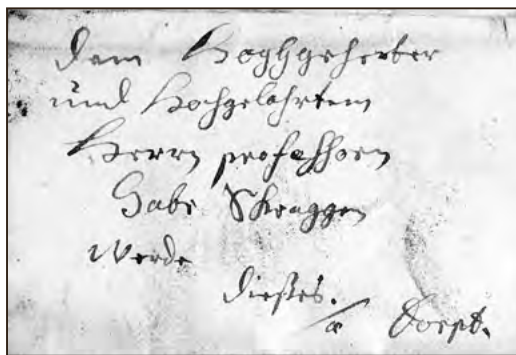 Dem Hoghgeherter
und Hochgelahrtem
Herrn professorn
Gabr. Skraggen
werde
dieses.
a Dorpt.